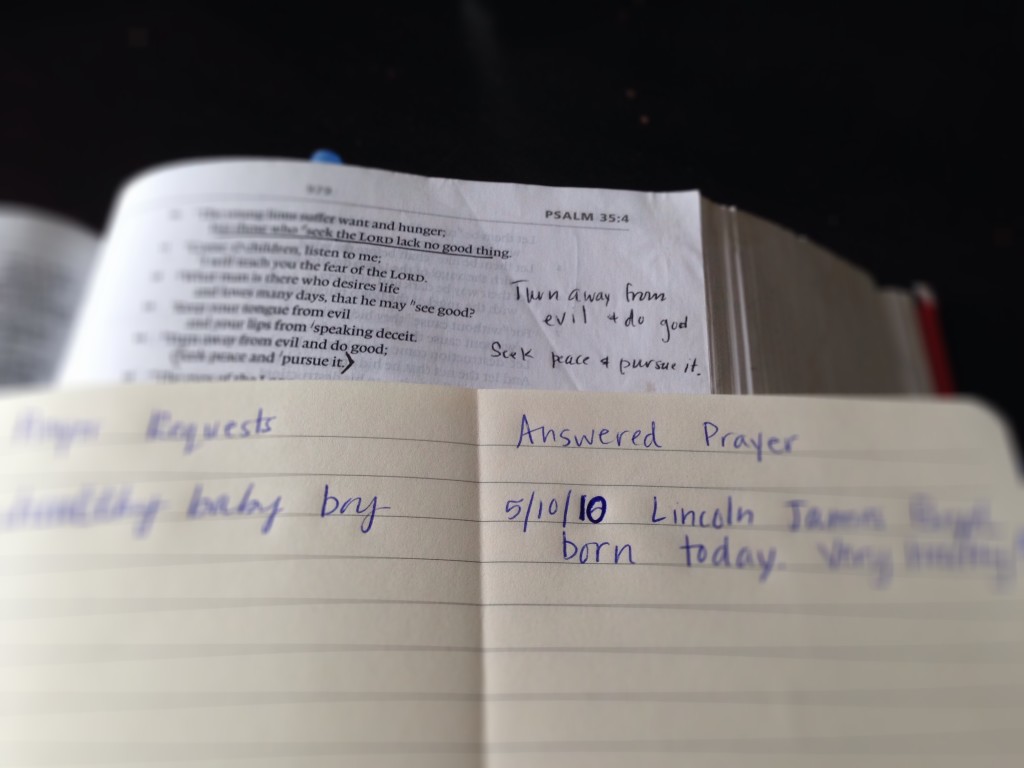 979
PSALM 35:4
suffer want and hunger;
who "seek the LORD lack no good thing.
children, listen to me;
teach you the fear of the LORD.
is there who desires life
many days, that he may "see good?
your tongue from evil
and your lips from speaking deceit.
away from evil and do good;
peace and pursue it.
Turn away from
evil + do god
Seek peace & pursue it.
Requests
Answered Prayer
baby boy
5/10/10 Lincoln James
born today. Very